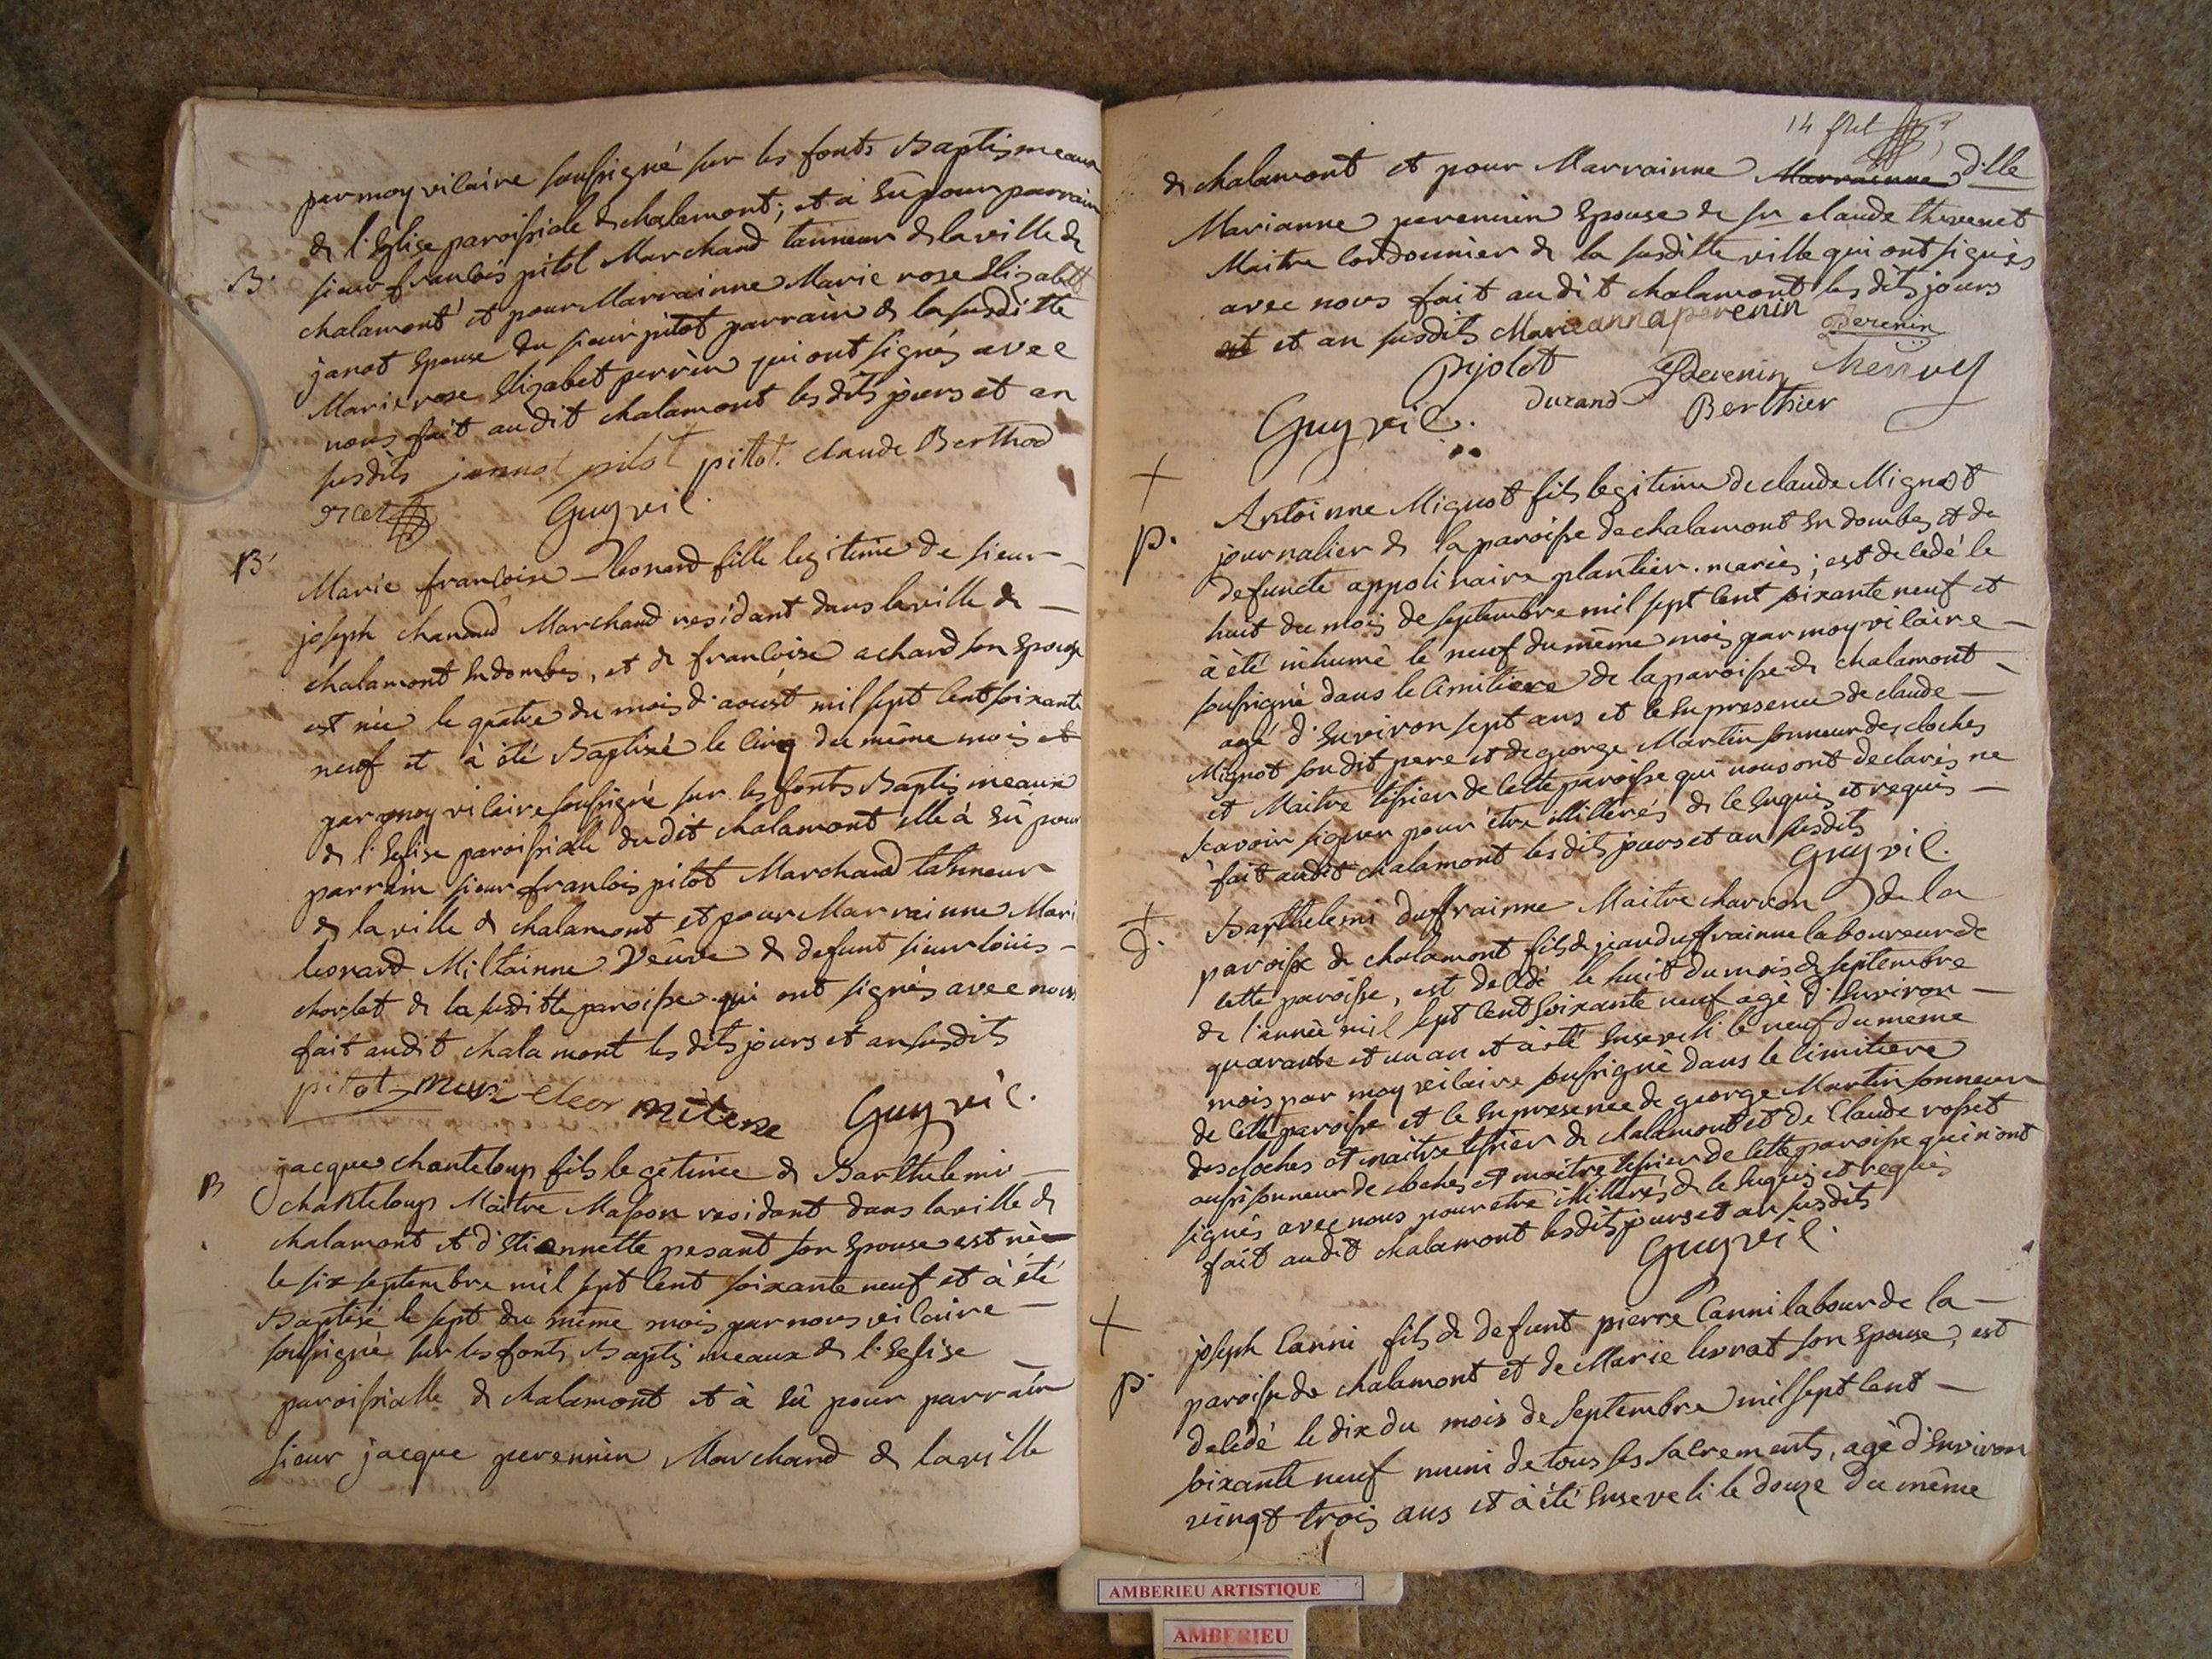 par moy vicaire soussigné sur les fonts Baptismeaux
de l'Eglise paroissiale de chalamont; et a Eû pour parrain
B. sieur francois pitol Marchand tanneur de la ville de
chalamont et pour Marrainne Marie rose Elizabett
janot Epouse du sieur pitot parrain de la susditte
Marie rose Elizabet perrin qui ont signés avec
nous fait audit chalamont les dits jours et an
susdits jannot pilot pittot. claude Berthod
Guy vic.
B. Marie francoise leonard fille legitime de sieur
joseph chanaud Marchand residant dans la ville de
chalamont en dombes, et de francoise achard son Epouse
est née le quatre du mois d'aoust mil sept cent soixante
neuf et à été Baptisé le cinq du même mois et
par moy vicaire soussigné sur les fonts Baptismeaux
de l'Eglise paroissialle dudit chalamont elle à Eû pour
parrain sieur francois pitot Marchand tanneur
de la ville de chalamont et pour Marrainne Mari
leonard Miltainne Veuve de defunt sieur louis
chorlet de la susditte paroisse qui ont signés avec nous
fait audit chalamont les dits jours et an susdits
pitot Mari eleor mitene Guy vic.
B jacque chanteloup fils legetime de Barthelemi
chanteloup Maitre Masson residant dans la ville de
chalamont et d'Etiennette pesant son Epouse est né
le six septembre mil sept cent soixante neuf et à été
Baptisé le sept du même mois par nous vicaire
soussigné sur les fonts Baptismeaux de l'Eglise
paroissialle de chalamont et à Eû pour parrain
sieur jacque perennin Marchand de la ville
14
de chalamont et pour Marrainne Marrainne dlle
Marianne perennin Epouse de sr claude thevenet
Maitre Cordonnier de la susditte ville qui ont signés
avec nous fait audit chalamont les dits jours
et et an susdits Marieanna perenin Perenin
Pijolet Perenin
Guy vic. Durand Berthier
+ Antoinne Mignot fils legitime de claude Mignot
p. journalier de la paroisse de chalamont en dombes et de
defuncte appolinaire plantier. mariés; est decedé le
huit du mois de septembre mil sept cent soixante neuf et
à été inhumé le neuf du même mois par moy vicaire
soussigné dans le Cimitiere de la paroisse de chalamont
agé d'Environ sept ans et ce En presence de claude
Mignot son dit pere et de george Martin sonneur des cloches
et Maitre tissier de cette paroisse qui nous ont declarés ne
scavoir signer pour être illitterés de ce Enquis et requis
fait audit chalamont les dits jours et an susdits
Guy vic.
+ Barthelemi duffrainne Maitre charron de la
paroisse de chalamont fils de jean duffrainne laboureur de
cette paroisse, est decedé le huit du mois de septembre
de l'année mil sept cent soixante neuf agé d'Environ
quarante et un an et à été Enseveli le neuf du meme
mois par moy vicaire soussigné dans le Cimitiere
de cette paroisse et ce En presence de george Martin sonneur
des cloches et maitre tissier de chalamont et de Claude rosset
aussi sonneur de cloches et maitre tissier de cette paroisse qui n'ont
signés avec nous pour etre illitterés de ce Enquis et requis
fait audit chalamont les dits jours et an susdits
Guy vic.
+ joseph Canni fils de defunt pierre Canni labour de la
p. paroisse de chalamont et de Marie levrat son Epouse, est
decedé le dix du mois de septembre mil sept cent
soixante neuf muni de tous ses sacrements, agé d'Environ
vingt trois ans et à été Enseveli le douze du même
AMBERIEU ARTISTIQUE
AMBERIEU